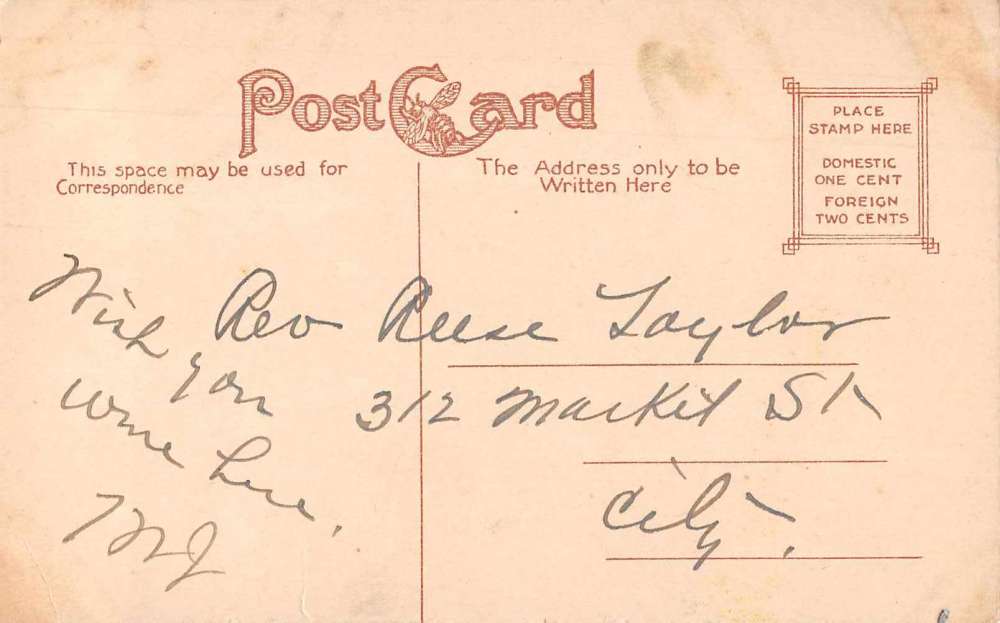 Post Card
This space may be used for
Correspondence
The Address only to be
Written Here
PLACE
STAMP HERE
DOMESTIC
ONE CENT
FOREIGN
TWO CENTS
Wish you
were here.
Rev Reese Taylor
312 Market St
City.